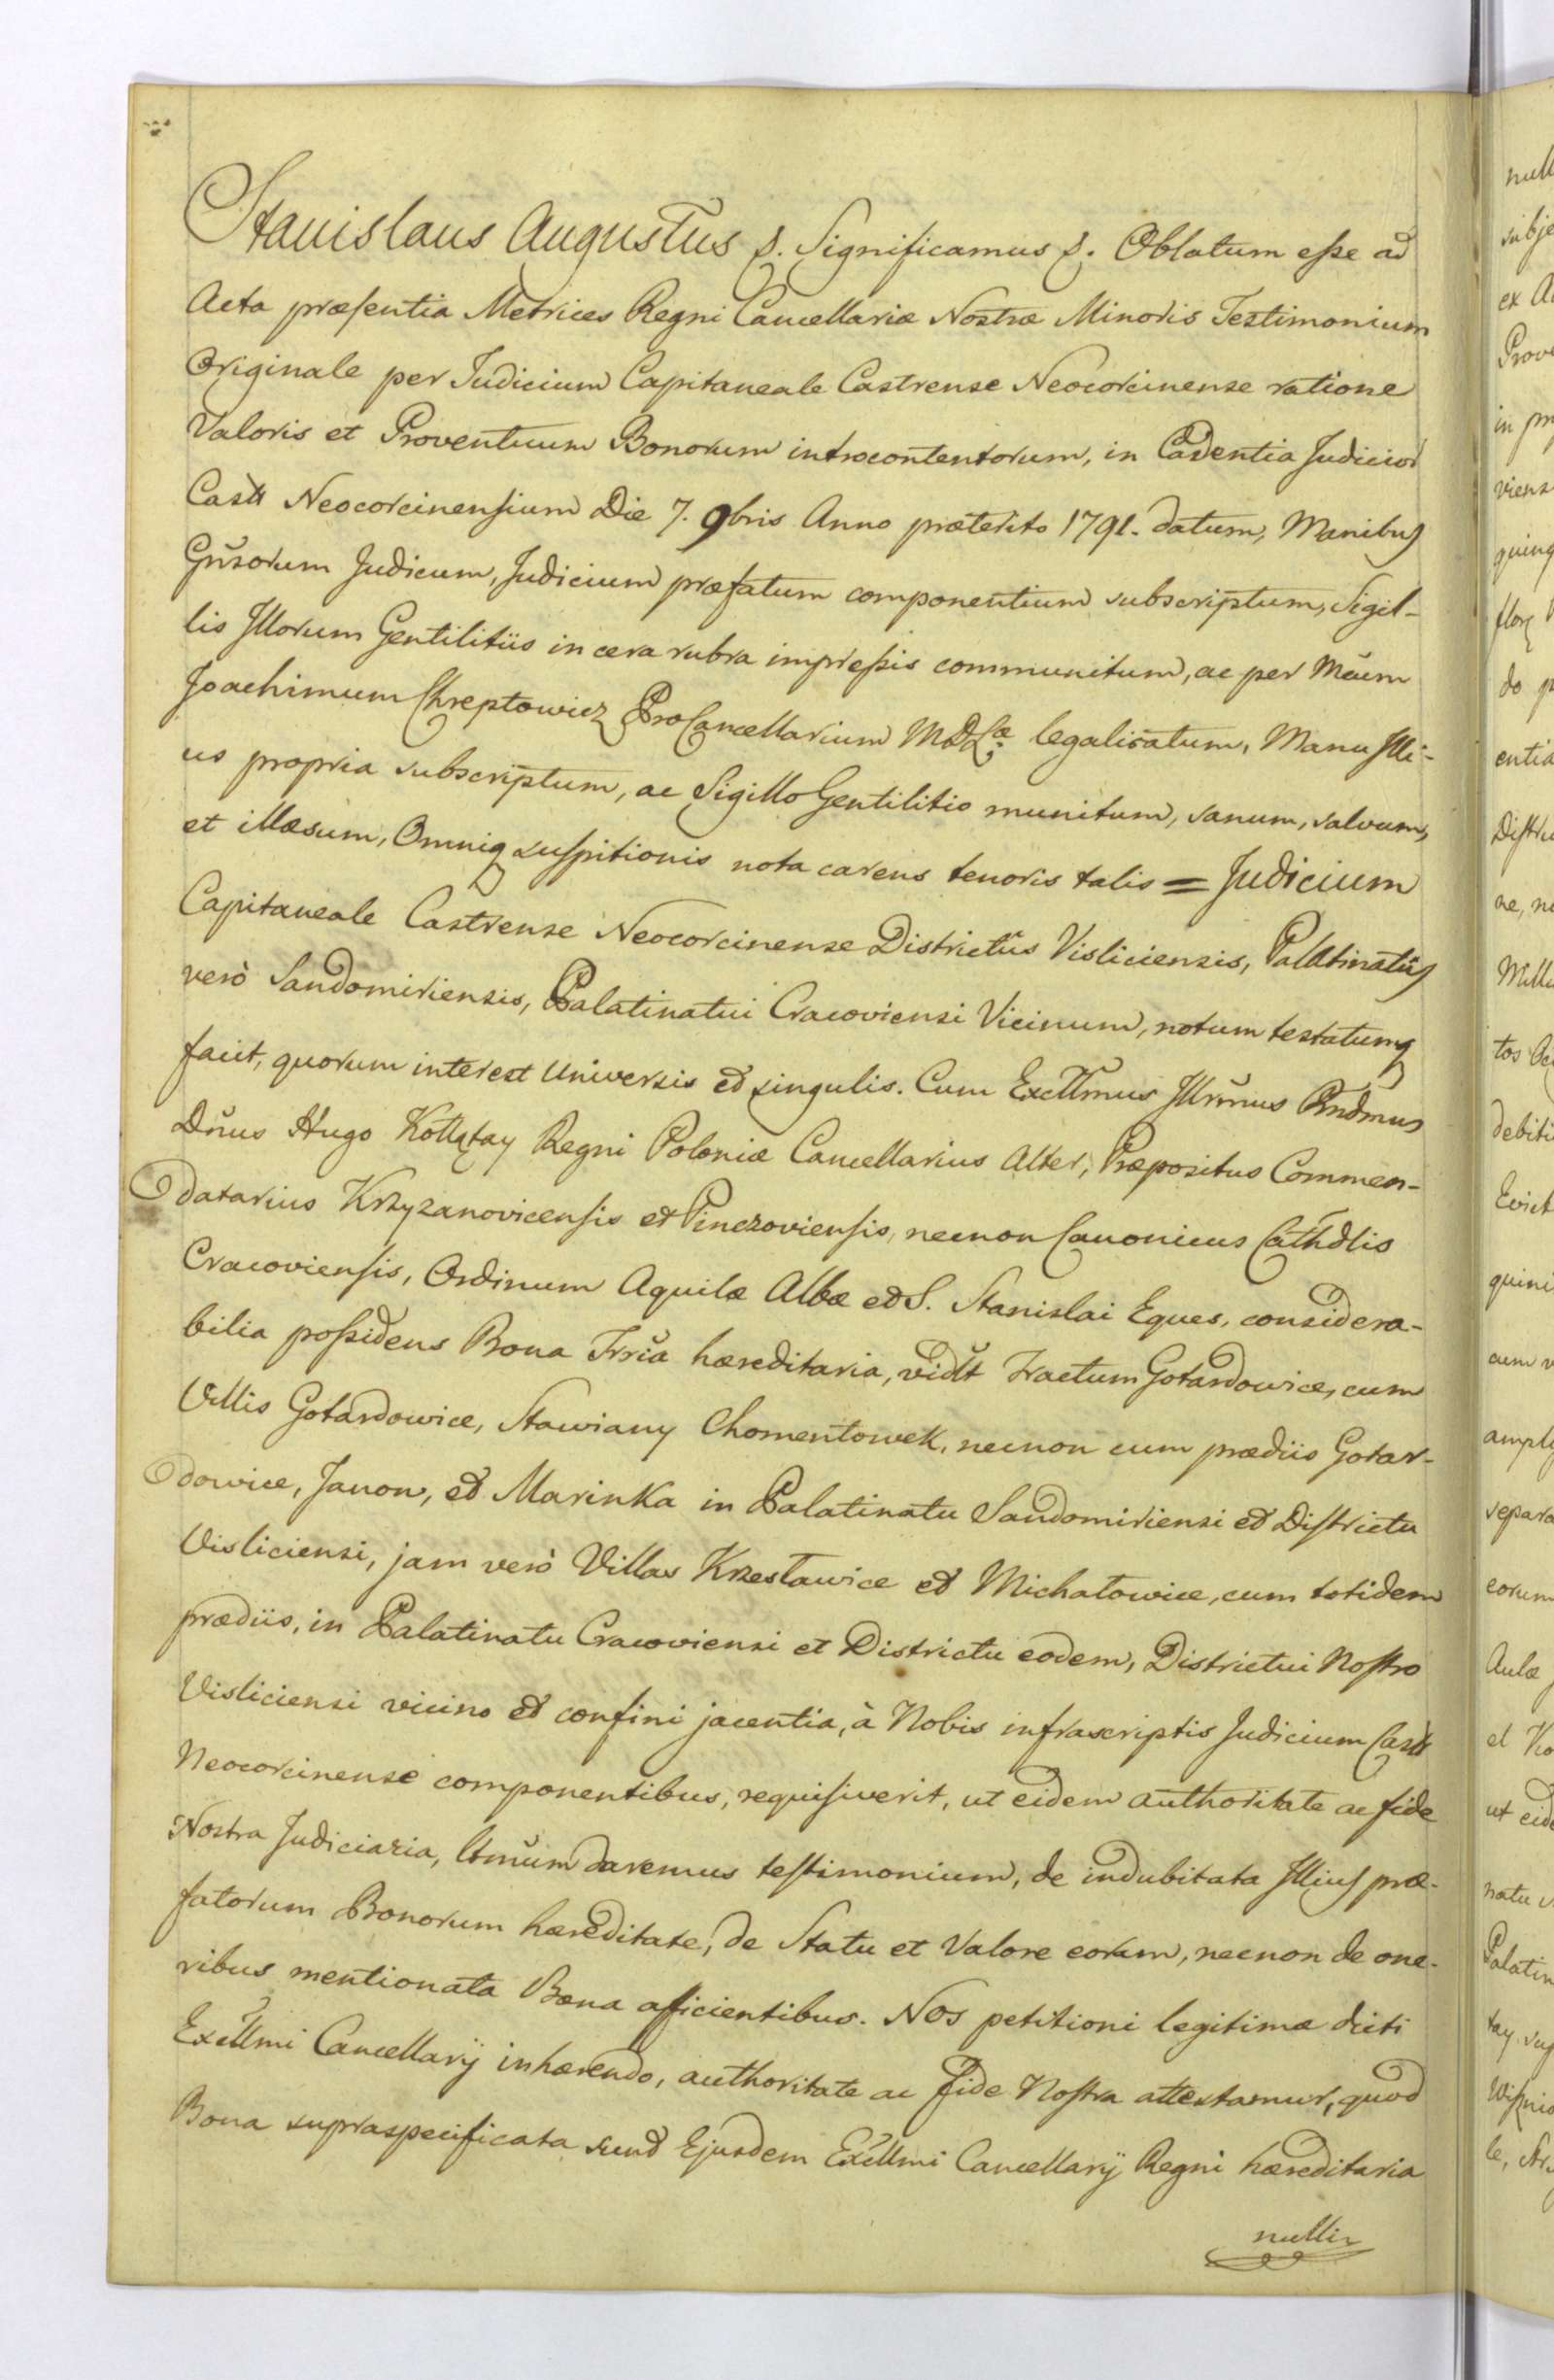 Stanislaus Augustus &. Significamus &. Oblatum eſse ad
Acta præſentia Metrices Regni Cancellariæ Nostræ Minoris Testimonium
Originale per Judicium Capitaneale Castrense Neocorcinense ratione
Valoris et Proventuum Bonorum introcontentorum, in Cadentia Judicior
Castt Neocorcinenſium Die 7. 9bris Anno præterito 1791. datum, Manibus
Gnsorum Judicum, Judicium præfatum componentium subscriptum, Sigil-
lis Illorum Gentilitiis in cera rubra impreſsis communitum, ac per Mcum
Joachimum Chreptowicz ProCancellarium MDLæ legalisatum, Manu Illi-
us propria subscriptum, ac Sigillo Gentilitio munitum, sanum, salvum,
et illæsum, Omniq suſpitionis nota carens tenoris talis = Judicium
Capitaneale Castrense Neocorcinense Districtûs Visliciensis, Palatinatûs
verò Sandomiriensis, Palatinatui Cracoviensi Vicinum, notum testatumq
facit, quorum interest Universis et singulis. Cum Excllmus Illrmus Rndmus
Dnus Hugo Kołłątay Regni Poloniæ Cancellarius Alter, Præpositus Commen-
datarius Krzyzanovicenſis et Pinczovienſis, necnon Canonicus Cathdlis
Cracovienſis, Ordinum Aquilæ Albæ et S. Stanislai Eques, considera-
bilia poſsidens Bona Trria hæreditaria, vidlt Tractum Gotardowice, cum
Villis Gotardowice, Stawiany Chomentowek, necnon cum prædiis Gotar-
dowice, Janow, et Marinka in Palatinatu Sandomiriensi et Diſtrictu
Visliciensi, jam verò Villas Krzesławice et Michałowice, cum totidem
prædiis, in Palatinatu Cracoviensi et Districtu eodem, Districtui Noſtro
Visliciensi vicino et confini jacentia, à Nobis infrascriptis Judicium Castt
Neocorcinense componentibus, requiſiverit, ut eidem authoritate ac fide
Nostra Judiciaria, ltmum daremus teſtimonium, de indubitata Illius præ-
fatorum Bonorum hæreditate, de Statu et Valore eorum, necnon de one-
ribus mentionata Bona aficientibus. Nos petitioni legitimæ dicti
Excllmi Cancellarij inhærendo, authoritate ac fide Noſtra attestamur, quod
Bona supraspecificata sunt Ejusdem Excllmi Cancellarij Regni hæreditaria
nulli